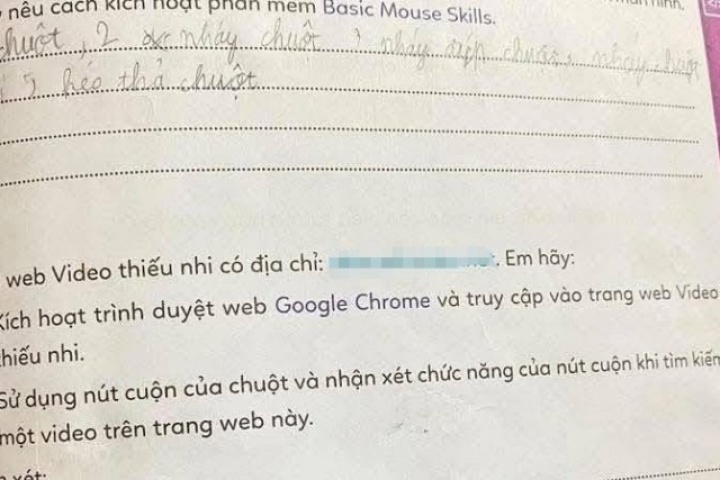 nêu cách kích hoạt phần mềm Basic Mouse Skills.
chuột, 2 nháy chuột 3 nháy đúp chuột, nháy chuột
5 kéo thả chuột
web Video thiếu nhi có địa chỉ: . Em hãy:
Kích hoạt trình duyệt web Google Chrome và truy cập vào trang web Video
thiếu nhi.
Sử dụng nút cuộn của chuột và nhận xét chức năng của nút cuộn khi tìm kiếm
một video trên trang web này.
xét: